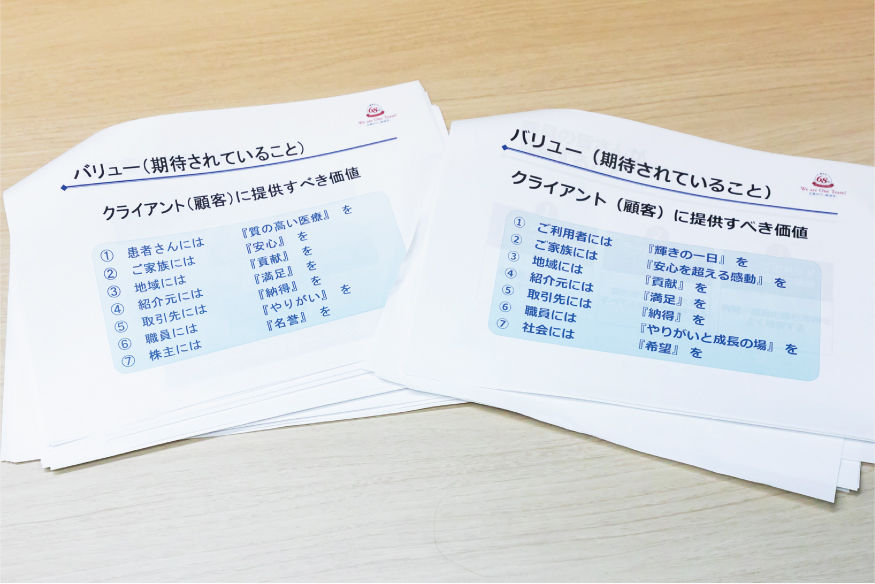 We are One Team!
バリュー(期待されていること)
クライアント(顧客)に提供すべき価値
① 患者さんには 『質の高い医療』 を
② ご家族には 『安心』 を
③ 地域には 『貢献』 を
④ 紹介元には 『満足』 を
⑤ 取引先には 『納得』 を
⑥ 職員には 『やりがい』 を
⑦ 株主には 『名誉』 を
We are One Team!
バリュー(期待されていること)
クライアント(顧客)に提供すべき価値
① ご利用者には 『輝きの一日』 を
② ご家族には 『安心を超える感動』 を
③ 地域には 『貢献』 を
④ 紹介元には 『満足』 を
⑤ 取引先には 『納得』 を
⑥ 職員には 『やりがいと成長の場』 を
⑦ 社会には 『希望』 を